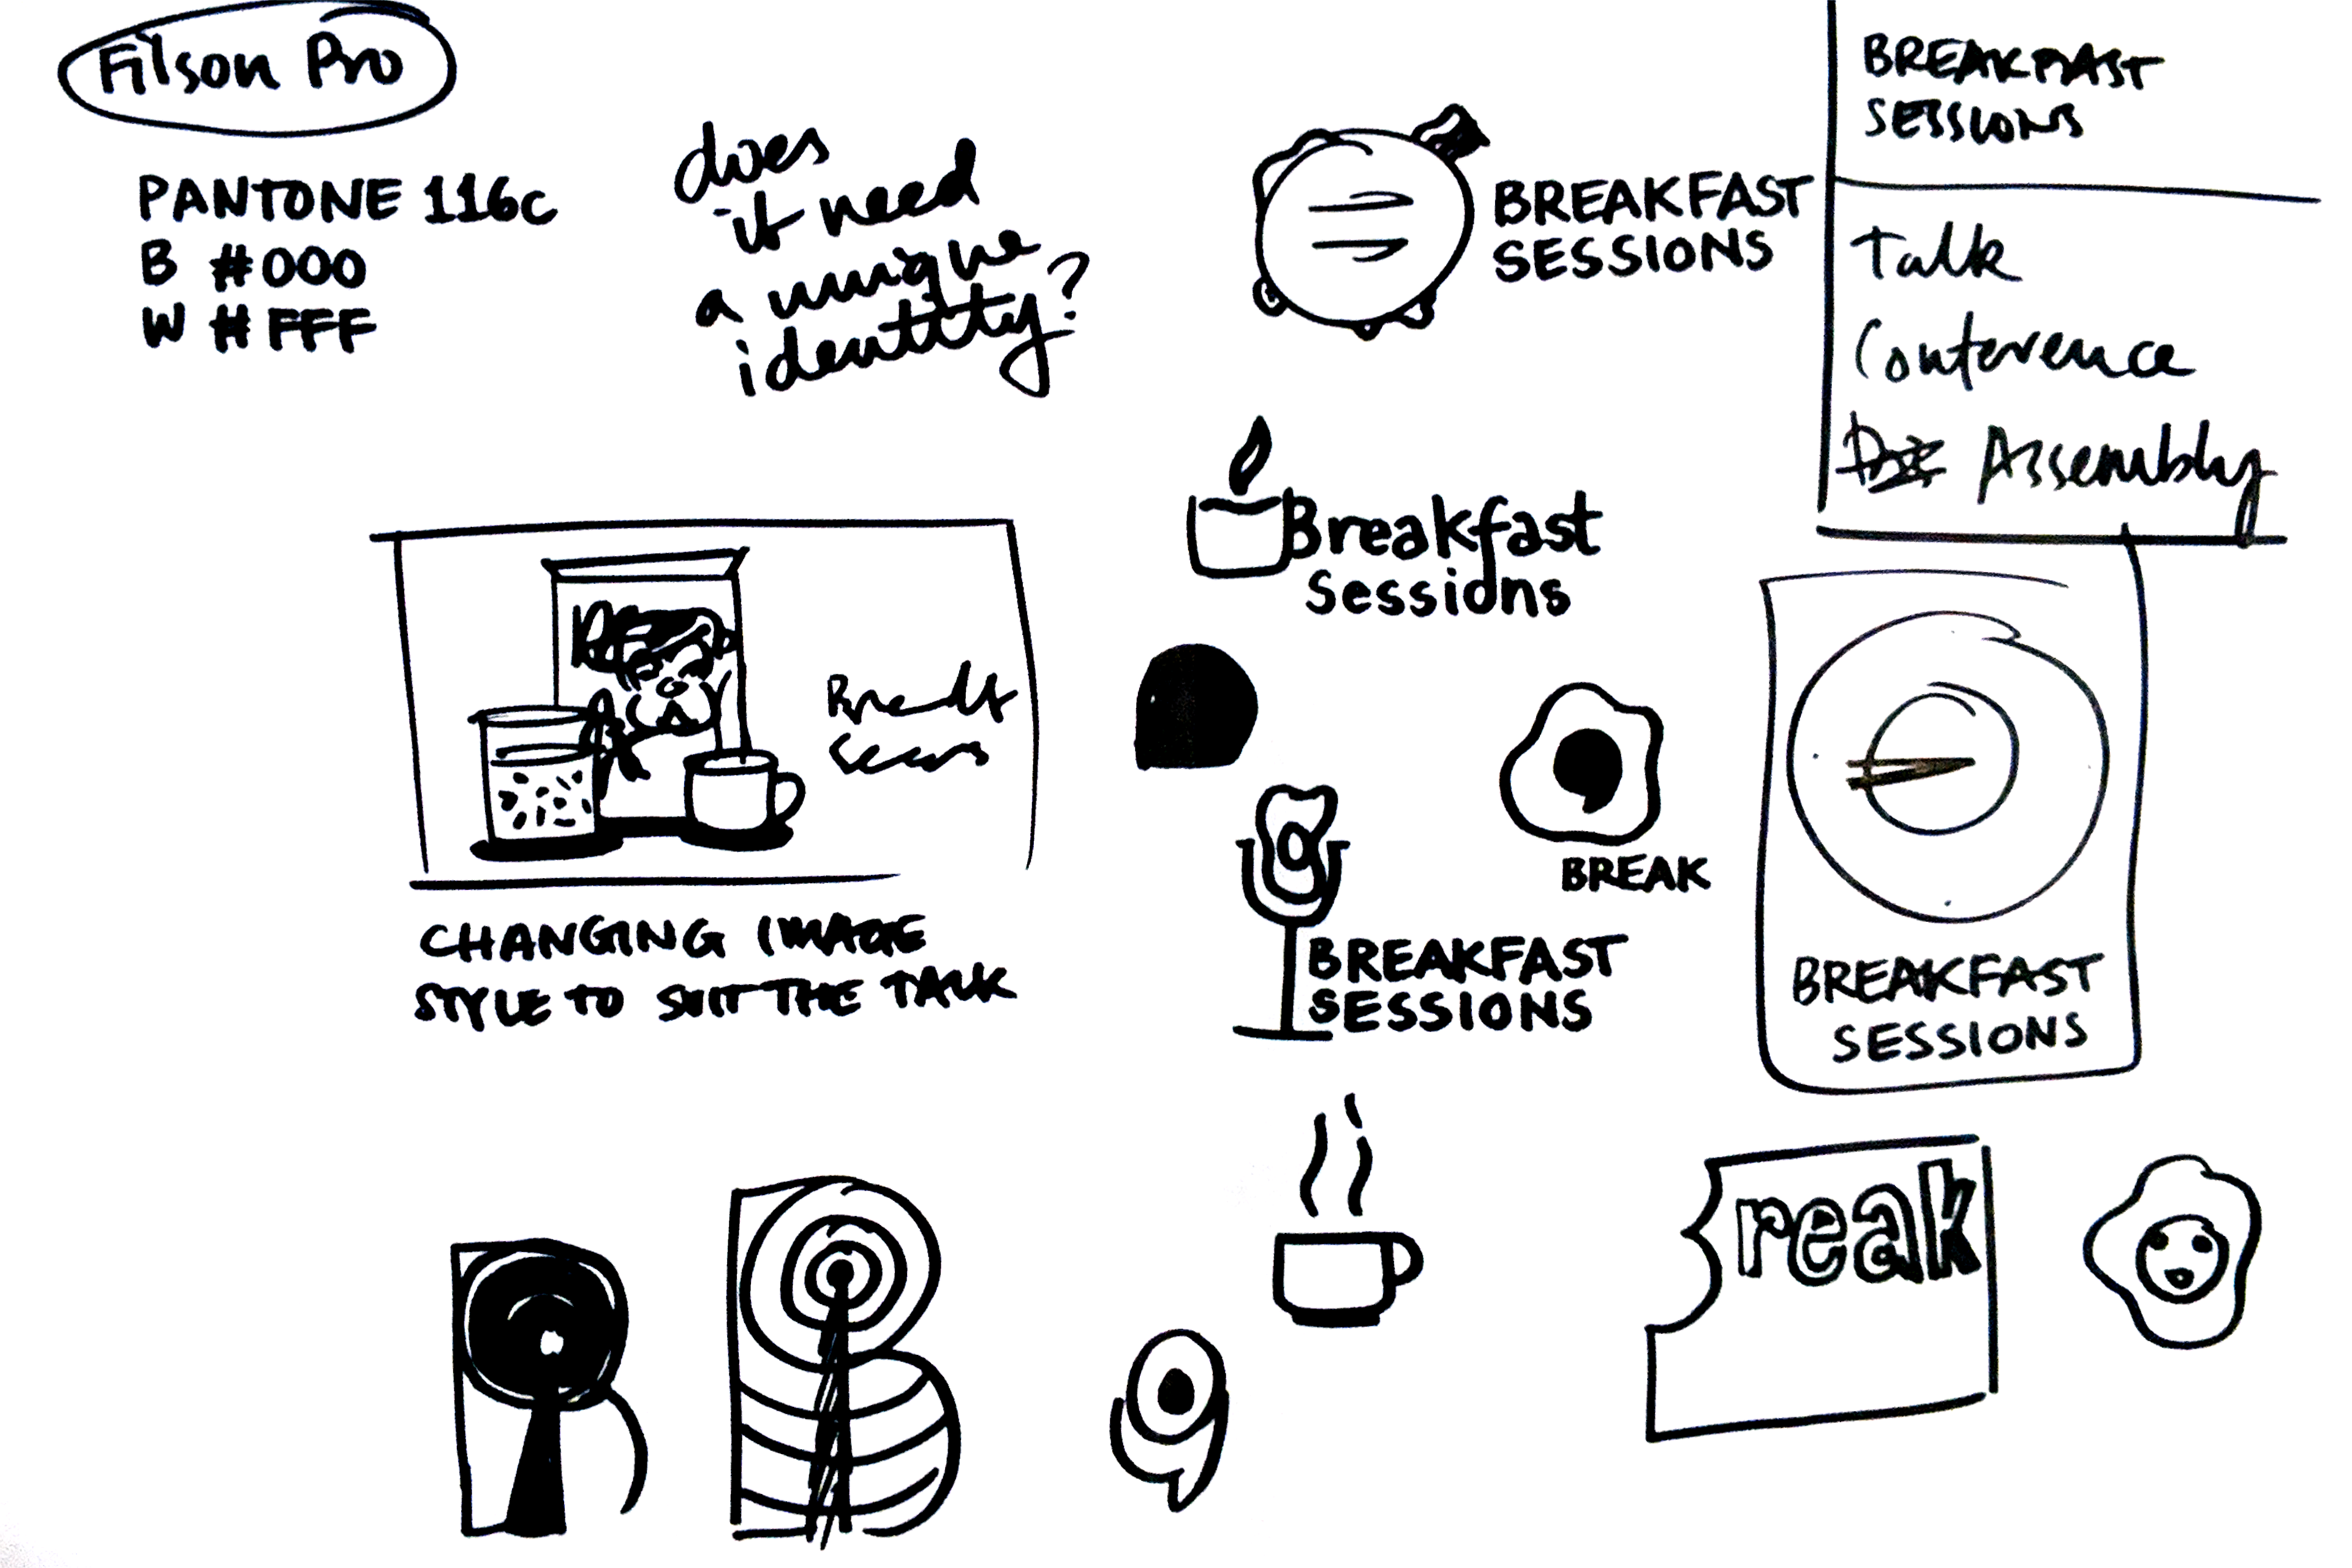 Filson Pro
PANTONE 116C
B #000
W #FFF
does
it need
a unique
identity?
BREAKFAST
SESSIONS
BREAKFAST
SESSIONS
Talk
Conference
Assembly
Breakfast
Sessions
CHANGING IMAGE
STYLE TO SUIT THE TALK
BREAK
BREAKFAST
SESSIONS
BREAKFAST
SESSIONS
reak